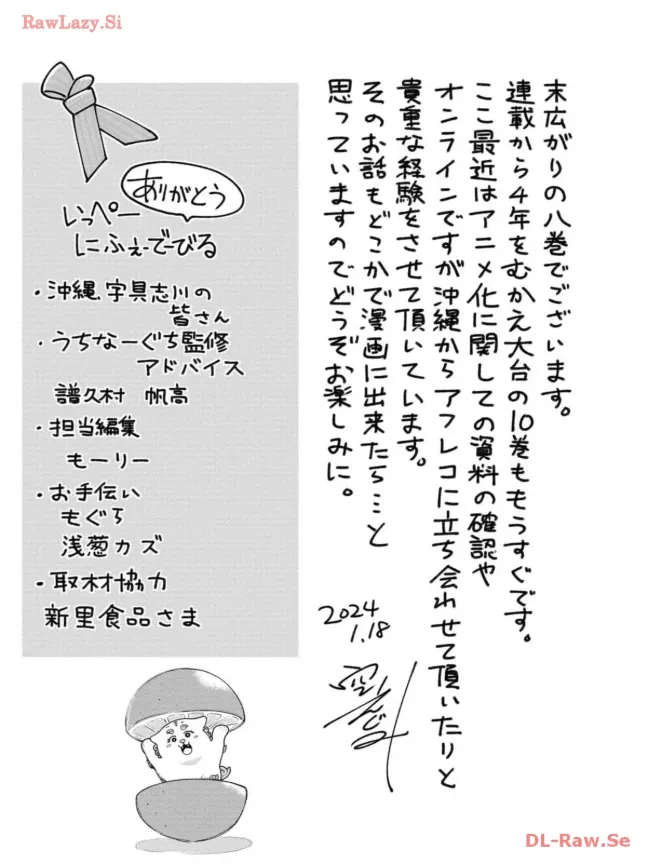 RawLazy.Si
末広がりの八巻でございます。
連載から4年をむかえ大台の10巻ももうすぐです。
ここ最近はアニメ化に関しての資料の確認や
オンラインですが沖縄からアフレコに立ち会わせて頂いたりと
貴重な経験をさせて頂いています。
そのお話もどこかで漫画に出来たら…と
思っていますのでどうぞお楽しみに。
2024
1.18
ありがとう
いっぺー
にふぇーでーびる
・沖縄、字具志川の
皆さん
・うちなーぐち監修
アドバイス
譜久村 帆高
・担当編集
もーリー
・お手伝い
もぐら
浅葱カズ
・取材協力
新里食品さま
DL-Raw.Se